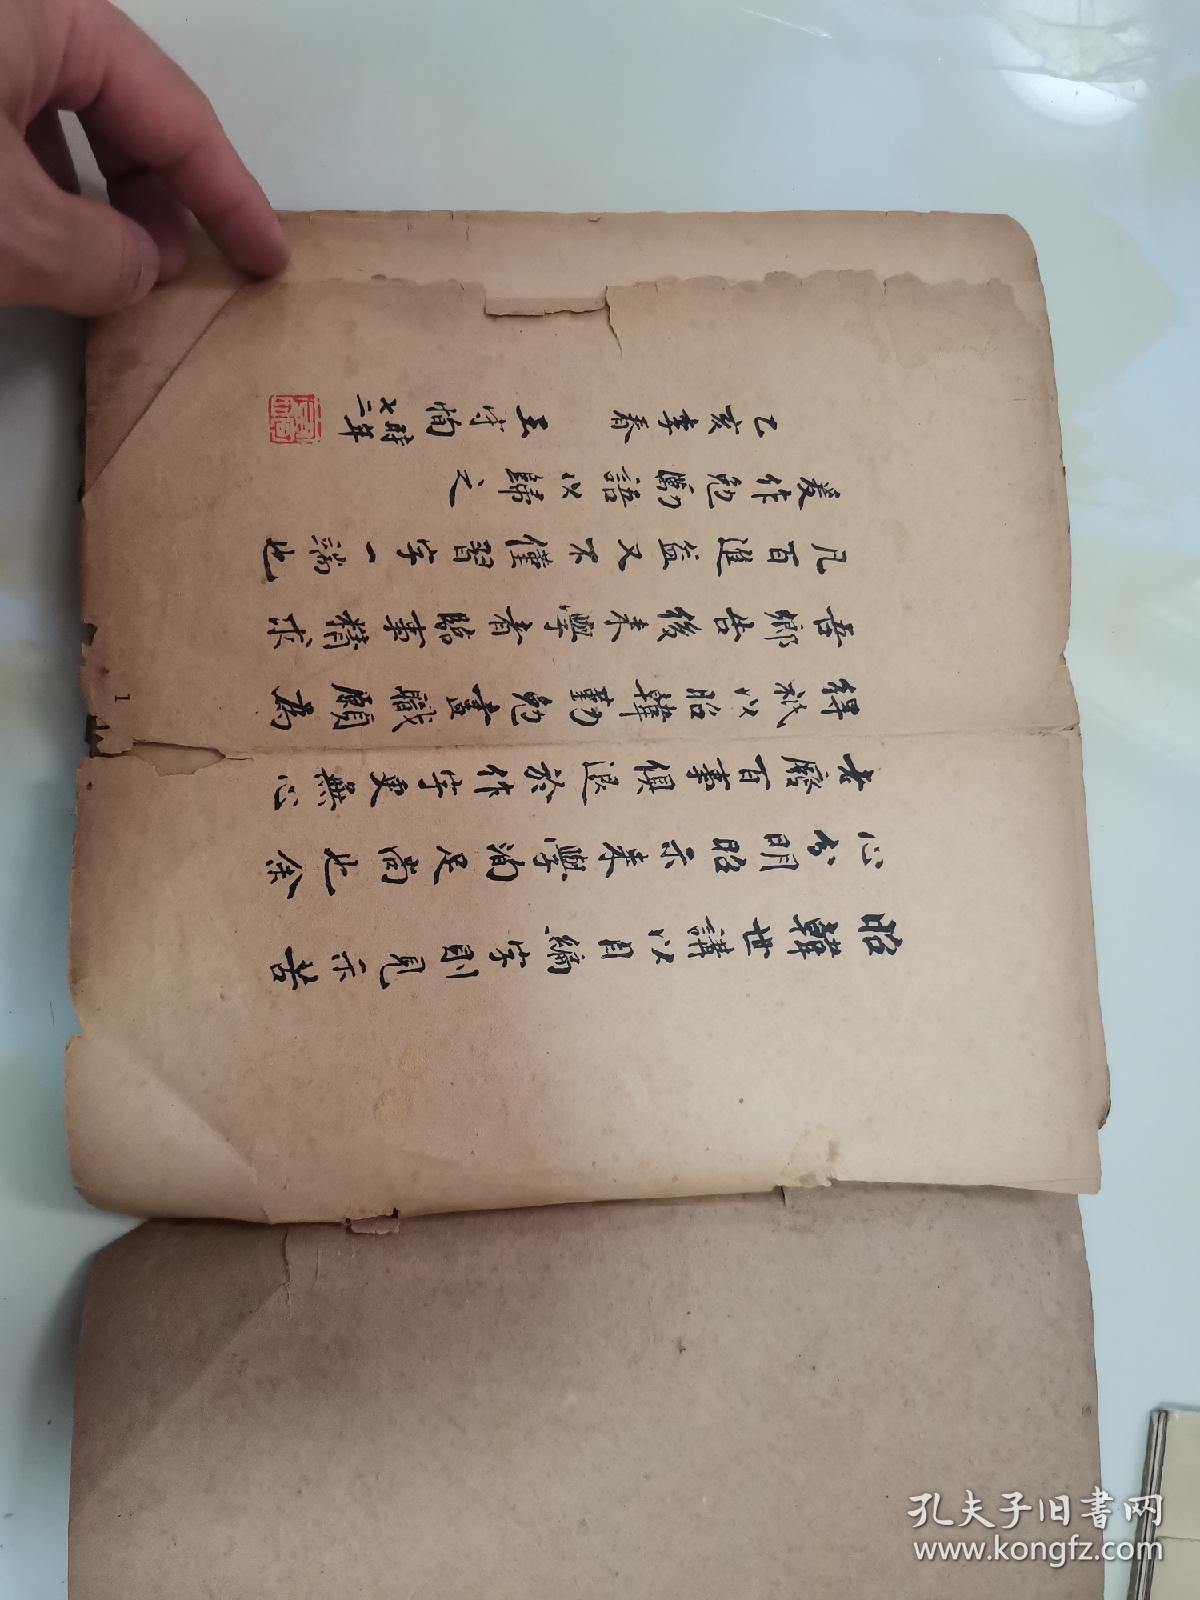 昭韡世講以自編字則見示苦
心分明昭示来學洵足尚也余
老廢百事俱退於作字更無心
得祇以昭韡勤勉盡職願為
吾鄉告後来學者臨事精求
凡百進益又不僅習字一端也
爰作勉勵語以歸之
乙亥季春 王守恂 時年七二
1
孔夫子旧书网
www.kongfz.com